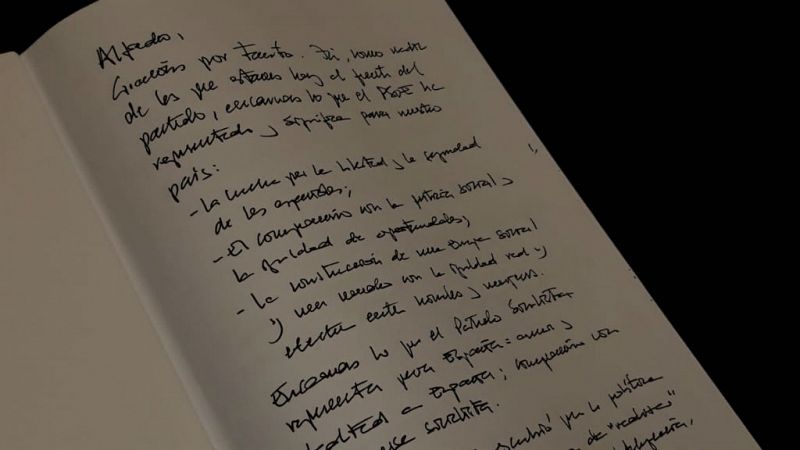 Alfredo,
Gracias por tanto. Tú, como nadie
de los que estamos hoy al frente del
partido, encarnas lo que el PSOE ha
representado y significa para nuestro
país:
- La lucha por la libertad y la seguridad
de los españoles;
- El compromiso con la justicia social y
la igualdad de oportunidades;
- La construcción de una Europa social
y una sociedad con la igualdad real y
efectiva entre hombres y mujeres.
Encarnas lo que el Partido Socialista
representa para España: amor y
lealtad a España; compromiso con
socialista.
que la política
de "realistas"